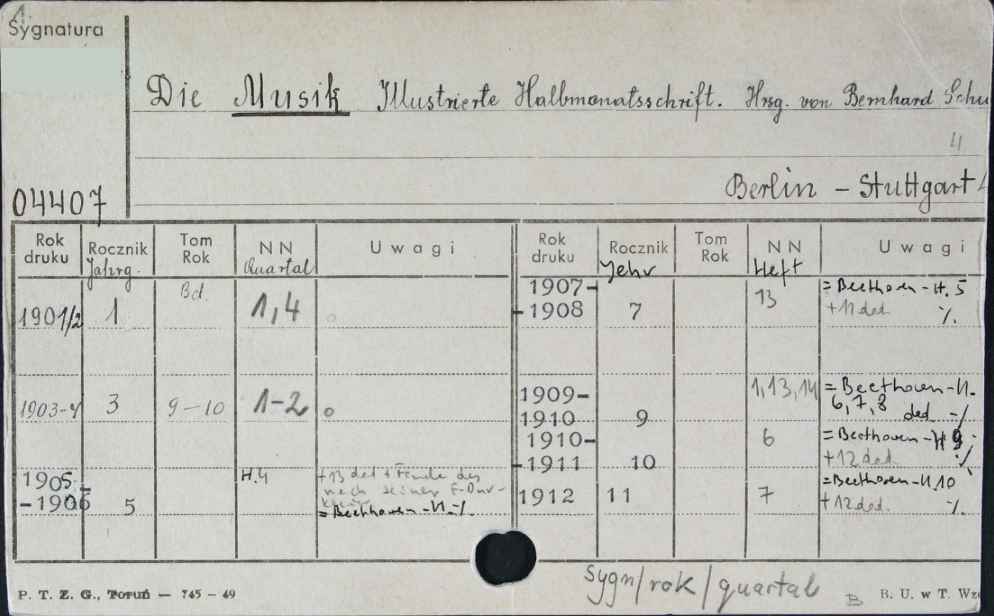 Sygnatura
Die Musik Illustrierte Halbmonatsschrift. Hrsg. von Bernhard Schu
4
04407
Berlin - Stuttgart
Rok druku Rocznik Jahrg. Tom Rok NN Quartal Uwagi
Bd.
1901/2 1 1,4
1903-4 3 9-10 1-2
1905-
-1906 5 H.4 +13 ded +
nach seiner F-Dur-
= Beethoven-H. ./.
Rok druku Rocznik Jahr Tom Rok NN Heft Uwagi
1907- 13 = Beethoven-H. 5
-1908 7 +11 ded. ./.
1909- 1,13,14 = Beethoven-H.
1910 9 6,7,8 ded ./.
1910- 6 = Beethoven-H 9
-1911 10 +12 ded. ./.
1912 11 7 = Beethoven-H.10
+12 ded. ./.
Sygn/rok/quartal
P. T. Z. G., Toruń — 745 — 49
B B. U. w T. Wz